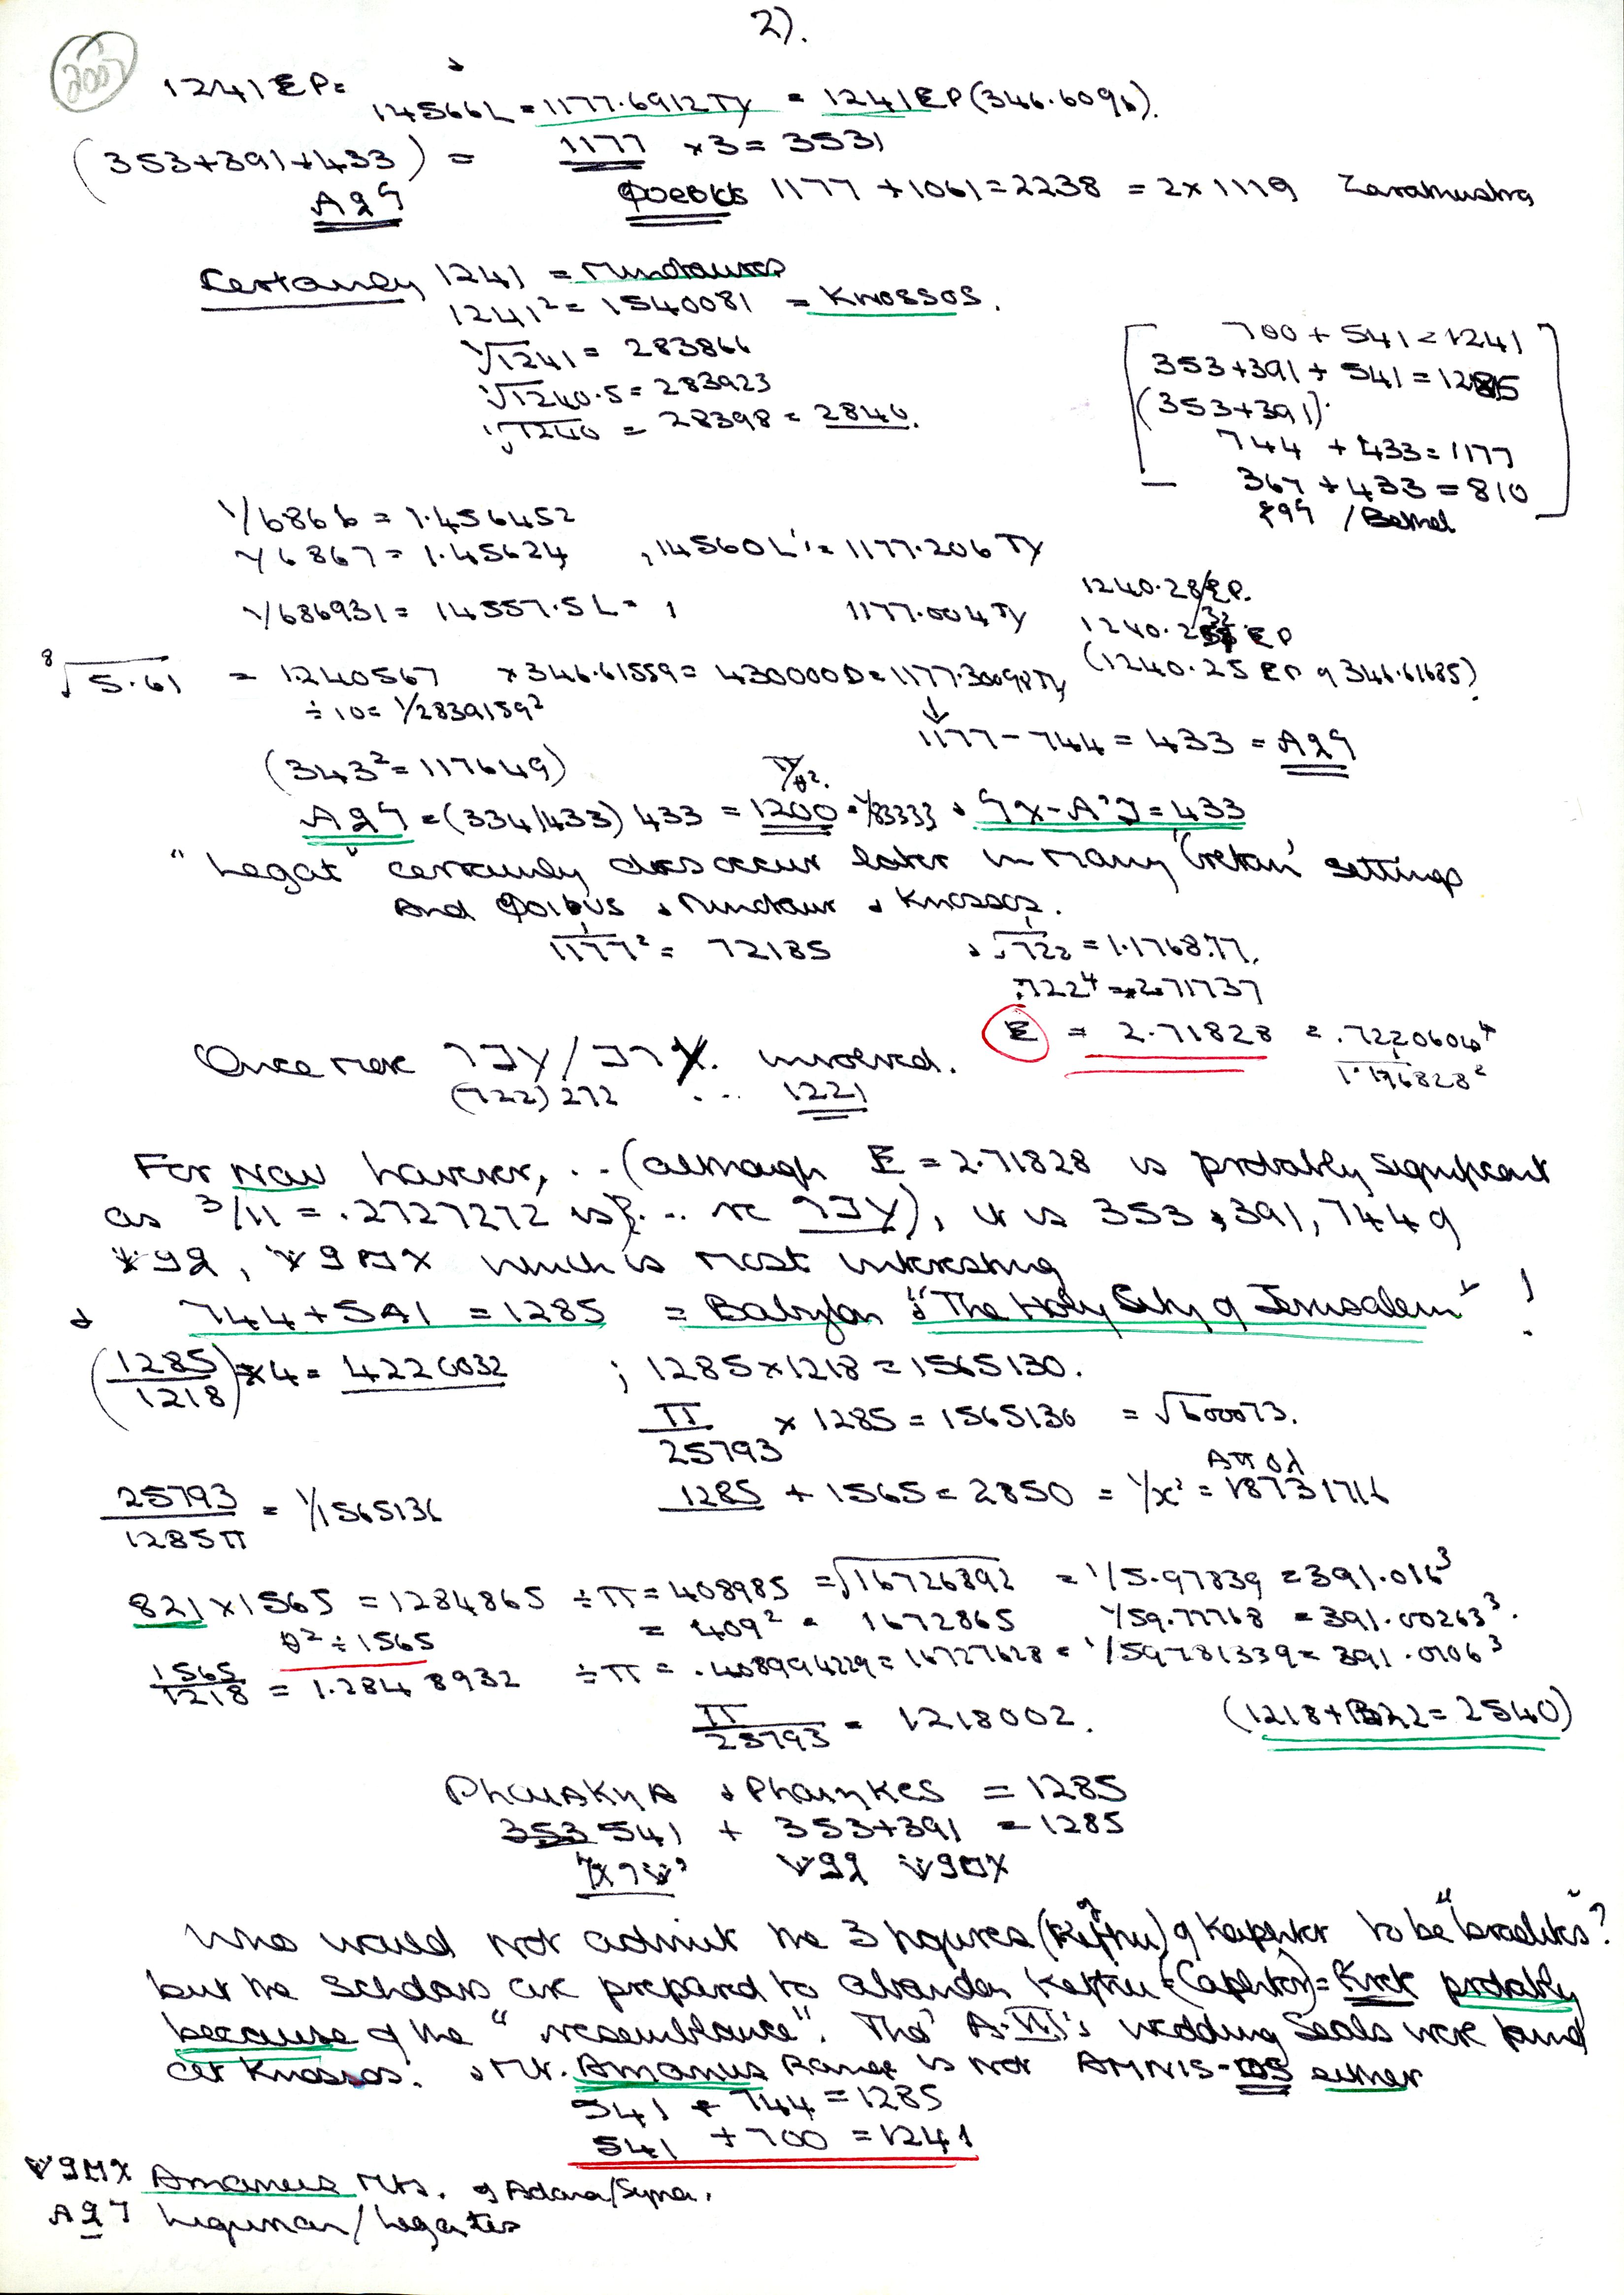 2).
2007
1241 EP =
14566L = 1177.6912Ty = 1241 EP (346.6096).
(353+391+433) = 1177 × 3 = 3531
1177 + 1061 = 2238 = 2 × 1119 Zarathustra
Certainly 1241 =
1241² = 1540081 = Knossos.
√1241 = 283866
√1240.5 = 283923
√1240 = 28398 = 2840.
700 + 541 = 1241
353+391 + 541 = 1285
(353+391)
744 + 433 = 1177
367 + 433 = 810
/Bethel
1/6866 = 1.456452
1/6867 = 1.45624 , 14560L = 1177.206 Ty
1240.28 EP.
1/686931 = 14557.5L = 1177.004 Ty
(1240.25 EP of 346.61685)
⁸√5.61 = 1.240567 × 346.61559 = 430000D = 1177.30098 Ty
÷ 10 = 1/2839159²
1177 - 744 = 433 =
(343² = 117649)
= (334/433) 433 = 1200 = 1/83333 = 433
"Legat" certainly does occur later in many 'Cretan' settings
and Φoibus & Minotaur & Knossos.
1177² = 72185
√722 = 1.176877.
.722⁴ = 2.71737
E = 2.71828 = .7220604⁴
1.176828²
Once more involved.
(722) 272 ... 1221
For now however, .. (although E = 2.71828 is probably significant
as 3/11 = .2727272 is).. re ), it is 353, 391, 744 of
which is most interesting
& 744 + 541 = 1285 = Babylon & "The Holy City of Jerusalem" !
(1285/1218) × 4 = 4220032 ; 1285 × 1218 = 1565130.
π/25793 × 1285 = 1565136 = √600073.
Aπoλ
25793/1285π = 1/1565136
1285 + 1565 = 2850 = 1/x² = 18731716
821 × 1565 = 1284865 ÷ π = 408985 = √16726892 = 1/5.97839 = 391.016³
θ² ÷ 1565
= 409² = 1672865 1/59.77768 = 391.00263³.
1565/1218 = 1.2848932 ÷ π = .4089994229 = 16727628 = 1/59781339 = 391.0106³
π/25793 = 1218002. (1218+1322 = 2540)
Phaiakya & Phoinykes = 1285
353 541 + 353+391 = 1285
Who would not admit the 3 figures (Keftiu) of Kaphtor to be "Israelites"?
but the Scholars are prepared to abandon Keftiu (Caphtor) = Kret probably
because of the "resemblance". Tho' A-III's wedding Seals were found
at Knossos. & Mt. Amanus Range is not AMNIS-OS either
541 + 744 = 1285
541 + 700 = 1241
Amanus Mts. of Adana/Syria.
/Legates